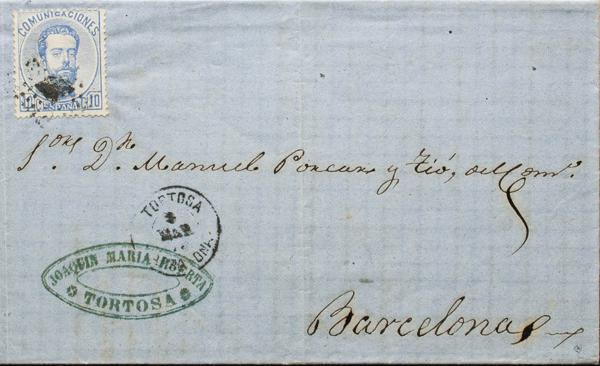 COMUNICACIONES
10 ESPAÑA 10
Sres. Dn. Manuel Porcar y Tió, del Como.
TORTOSA
MAR
JOAQUIN MARIA
TORTOSA
Barcelona